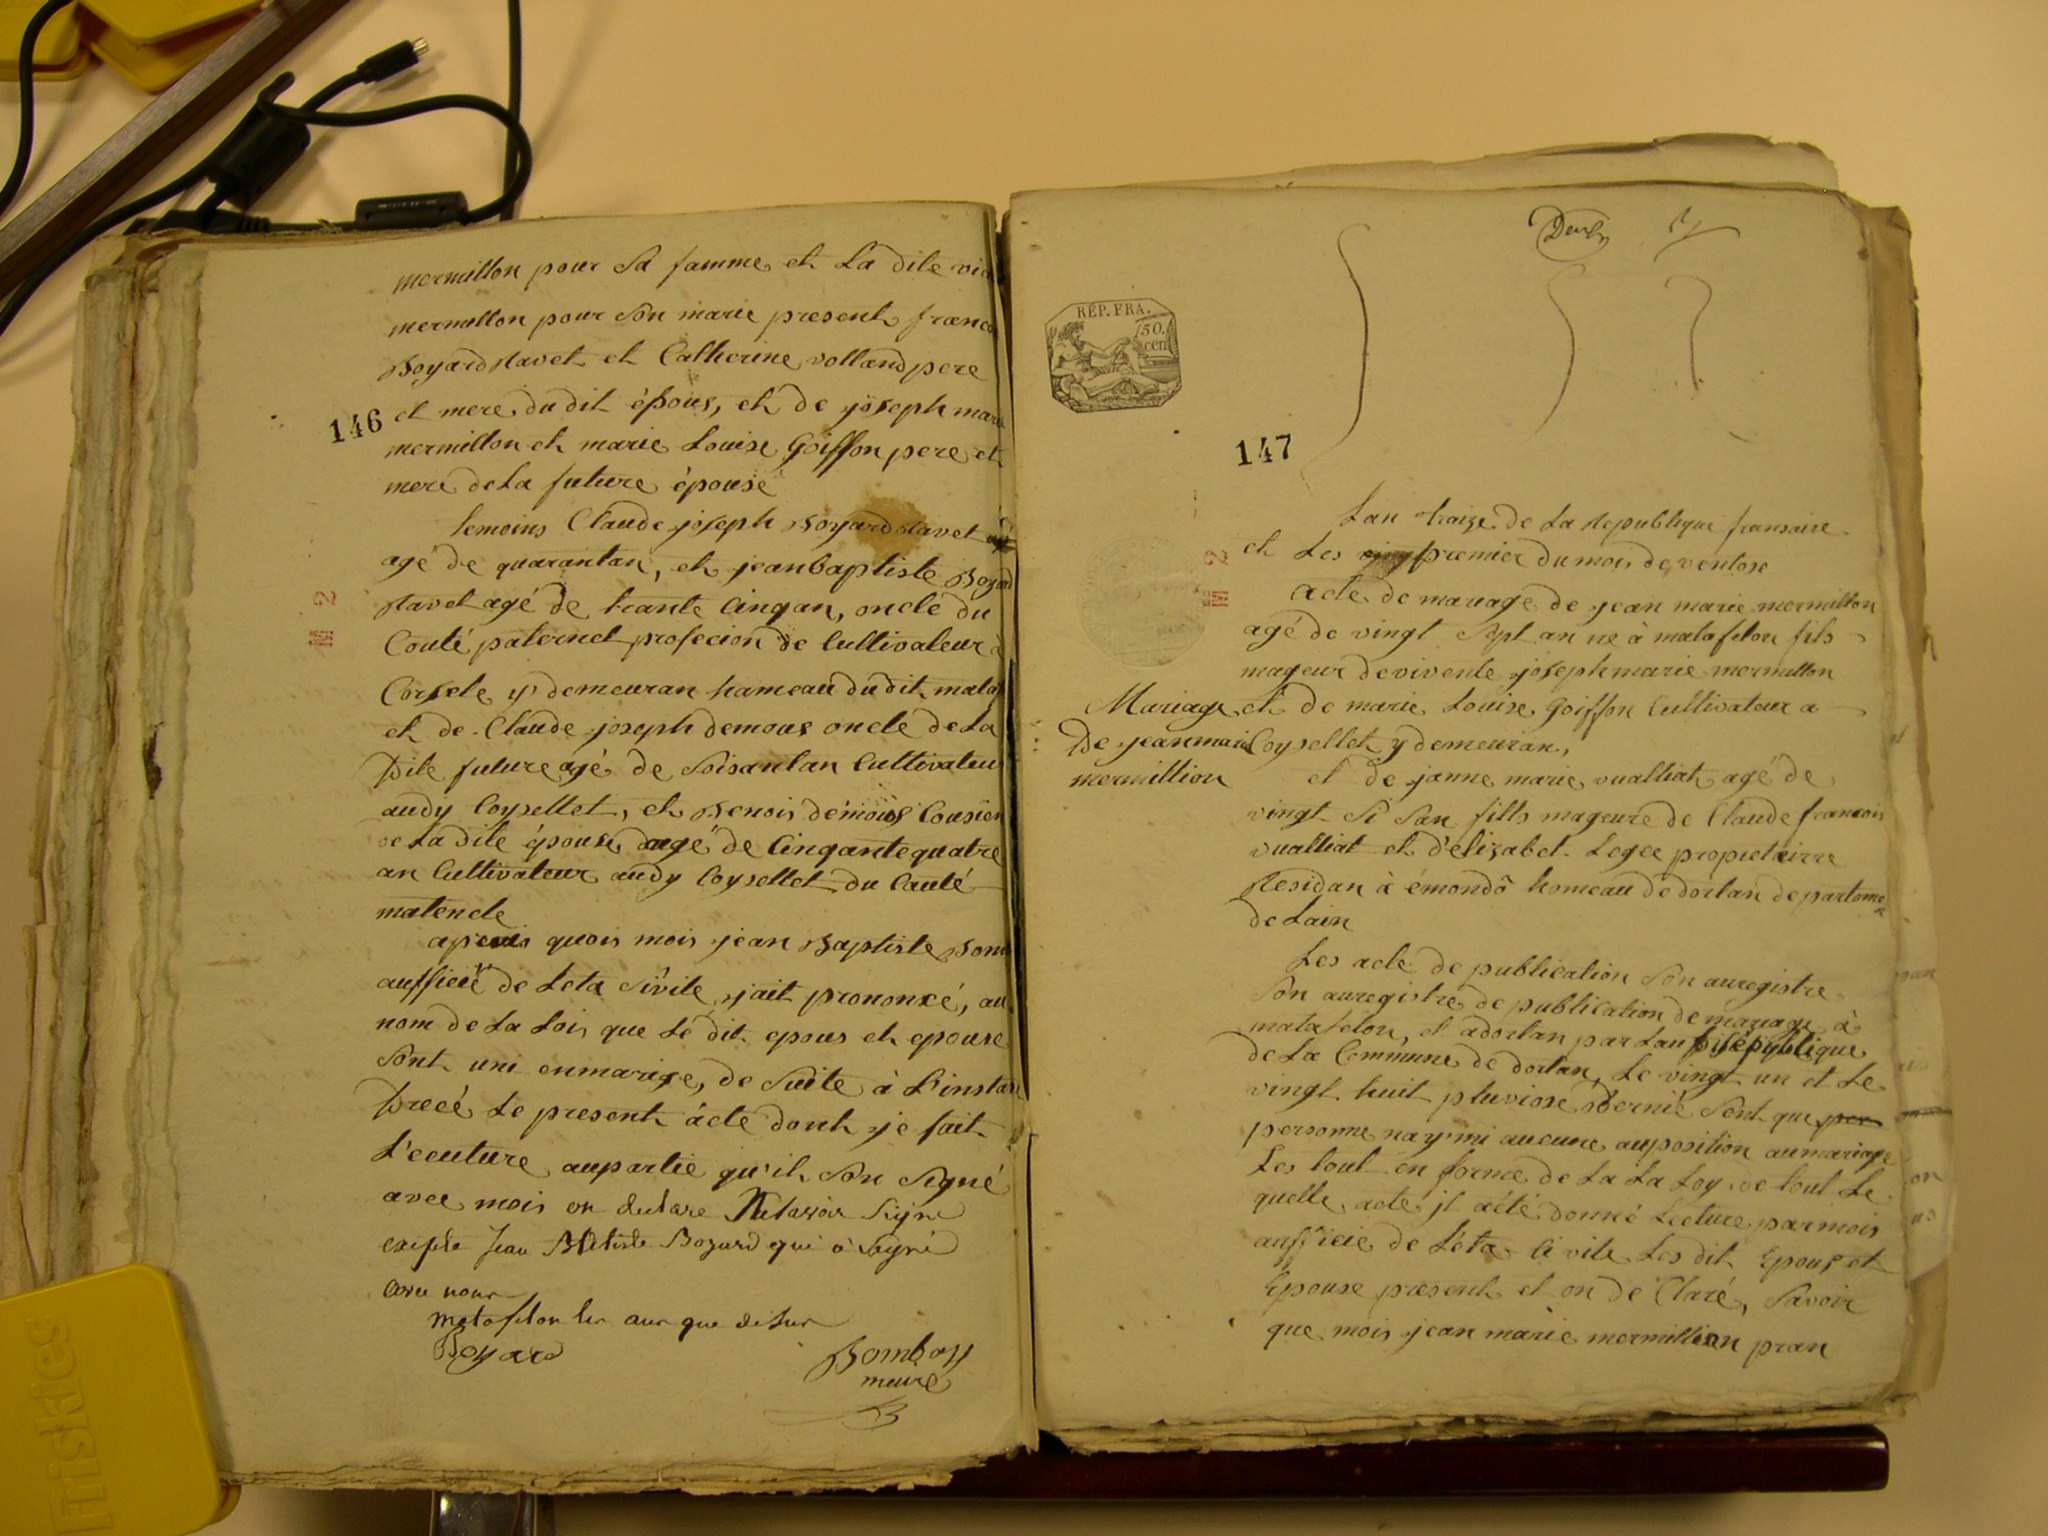 mermillon pour Sa famme et La dite
mermillon pour Son marie present
Boyard Ravet et Catherine volland pere
146
et mere du dit épous, et de joseph marie
mermillon et marie Louise Goiffon pere et
mere de La future épouse
temoins Claude joseph Boyard Ravet
agé de quarantan, et jean baptiste Boyard
Ravet agé de trante Cinqan, oncle du
Couté paternel profecion de Cultivateur à
M 2
y demeuran hameau du dit
et de Claude joseph demous oncle de La
Dite future agé de Soisantan Cultivateur
audy Coysellet, et Benois demous Cousien
de La dite épouse agé de Cinqante quatre
an Cultivateur audy Coysellet du Couté
matenele
quois mois jean Baptiste
aufficié de Leta Sivile, jait prononcé, au
nom de La Lois que Lé dit epous et epouse
Sont uni enmariage, de Suite à L'instan
Drecé Le present ácte dont je fait
L'ecuture aupartie qu'il Son Signé
avec mois on declare Signe
Jean Boyard qui a Signé
avec nous
matafelon les
Boyard
Bomboy
maire
RÉP. FRA.
50.
cen
147
Lan traize de La Republique fransaire
et Les premier du mois de ventose
M 2
Acte de mariage de jean marie mermillon
agé de vingt Sept an ne à matafelon fils
mageur de vivente joseph marie mermillon
Mariage
de jean marie
mermillion
et de marie Louise Goiffon Cultivateur a
Coysellet y demeuran,
et de janne marie vualliat agé de
vingt Si San fills mageure de Claude francois
vualliat et d'élizabet Legee propietairre
Residan à émondô homeau de dortan departeme
de Lain
Les acte de publication Son auregistre
Son auregistre de publication de mariage à
matafelon, et adortan par Lau
de La Commune de dortan, Le vingt un et Le
vingt huit pluviose dernié Sent que per
personne nay mi aucune auposition au mariage
Les tout en forme de La La Loy de tout Le
quelle acte jl áété donné Lecture par mois
aufficié de L'éta Civile Les dit Epous et
Epouse present et on de Claré, Savoir
que mois jean marie mermillion pran